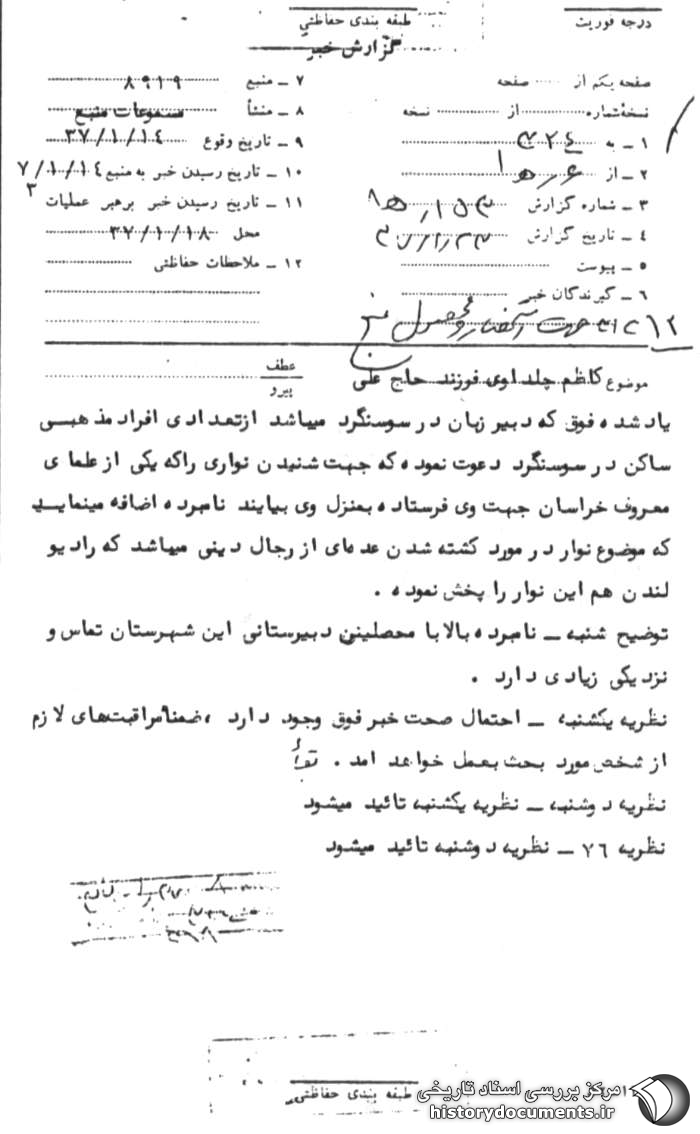 درجه فوریت
طبقه بندی حفاظتی
گزارش خبر
صفحه یکم از ...... صفحه
نسخه شماره ............ از ............ نسخه
۱ ـ به ۳۲٤
۲ ـ از ۶ ره ۱
۳ ـ شماره گزارش
٤ ـ تاریخ گزارش
۵ ـ پیوست
۶ ـ گیرندگان خبر
۷ ـ منبع ۸۹۱۹
۸ ـ منشأ مسموعات منبع
۹ ـ تاریخ وقوع ۳۷/۱/۱٤
۱۰ ـ تاریخ رسیدن خبر به منبع ۷/۱/۱٤
۳
۱۱ ـ تاریخ رسیدن خبر برهبر عملیات
محل ۳۷/۱/۱۸
۱۲ ـ ملاحظات حفاظتی
موضوع کاظم چلداوی فرزند حاج علی
عطف
پیرو
یاد شده فوق که دبیر زبان در سوسنگرد میباشد ازتعدادی افراد مذهبی
ساکن در سوسنگرد دعوت نموده که جهت شنیدن نواری راکه یکی از علمای
معروف خراسان جهت وی فرستاده بمنزل وی بیایند نامبرده اضافه مینماید
که موضوع نوار در مورد کشته شدن عده‌ای از رجال دینی میباشد که رادیو
لندن هم این نوار را پخش نموده .
توضیح شنبه ـ نامبرده بالا با محصلین دبیرستانی این شهرستان تماس و
نزدیکی زیادی دارد .
نظریه یکشنبه ـ احتمال صحت خبر فوق وجود دارد ، ضمنا مراقبت‌های لازم
از شخص مورد بحث بعمل خواهد امد .
نظریه دوشنبه ـ نظریه یکشنبه تائید میشود
نظریه ۷۶ ـ نظریه دوشنبه تائید میشود
طبقه بندی حفاظتی
مرکز بررسی اسناد تاریخی
historydocuments.ir